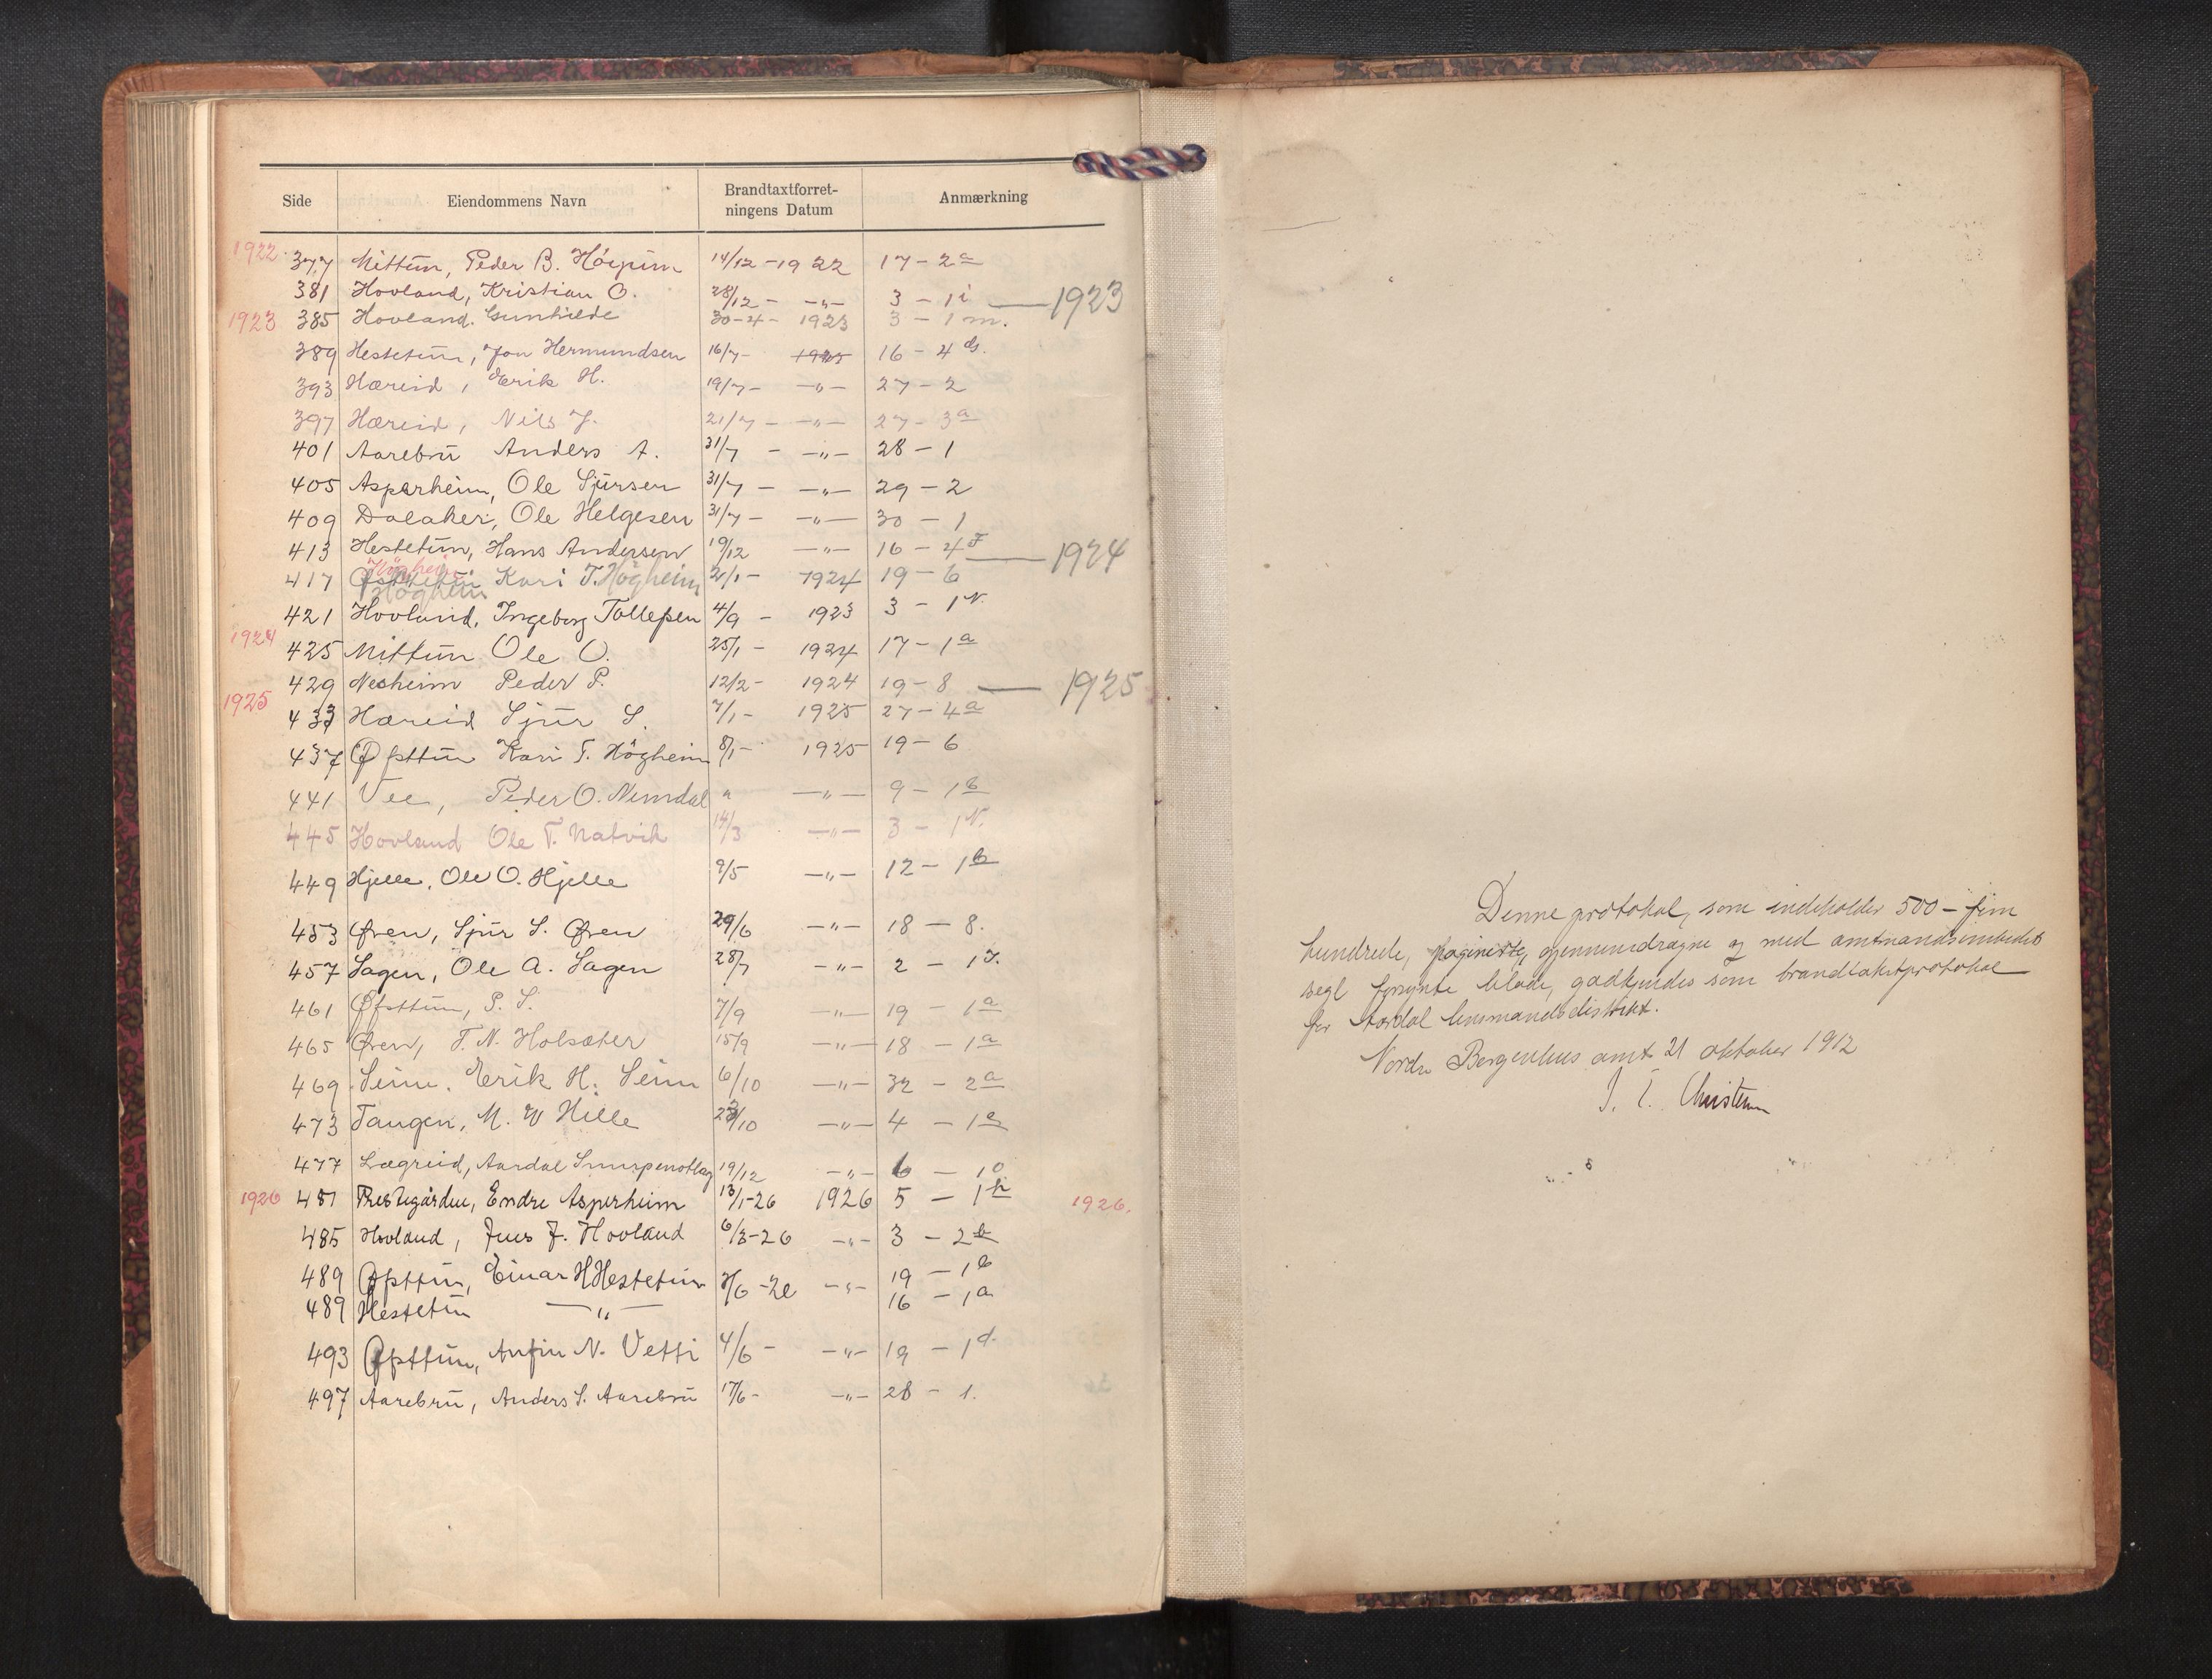 Side Eiendommens Navn Brandtaxtforret- Anmærkning
ningens Datum
1922. 377 Mittun, Peder B. 14/12 - 1922 17 - 2a
381 Hovland, Kristian O. 28/12 - -"- 3 - 1i — 1923
1923 385 Hovland. Gunhilde 30-4- 1923 3 - 1m.
389 Hestetun, Jon Hermundsen 16/7- 16 - 4
393 Hæreid, Erik H. 19/7- -"- 27 - 2
397 Hæreid, Nils J. 21/7- -"- 27 - 3a
401 Aarebru Anders A. 31/7 - -"- 28 - 1
405 Asperheim, Ole Sjursen 31/7 - -"- 29 - 2
409 Dalaker, Ole Helgesen 31/7 - -"- 30 - 1
413 Hestetun, Hans Andersen 19/12 -"- 16 - 4F — 1924
Høgheim
417 Kari T. Høgheim 2/1 - 1924 19 - 6
Høgheim
421 Hovland, Ingeborg Tollefsen 4/9 - 1923 3 - 1N.
1924 425 Mittun Ole O. 25/1 - 1924 17 - 1a
429 Nesheim Peder P. 12/2 - 1924 19 - 8 — 1925
1925 433 Hæreid Sjur S. 7/1 - 1925 27 - 4a
437 Øfsttun Kari T. Høgheim 8/1 - 1925 19 - 6
441 Vee, Peder O. Nundal " -"- 9 - 1b
445 Hovland Ole T. Natvik 14/3 -"- 3 - 1N.
449 Hjelle, Ole O. Hjelle 9/5 -"- 12 - 1b
453 Øren, Sjur S. Øren 29/6 -"- 18 - 8.
457 Sagen, Ole A. Sagen 28/7 -"- 2 - 1
461 Øfsttun, P. S. 7/9 -"- 19 - 1a
465 Øren, T. N. Holsæter 15/9 -"- 18 - 1a
469 Seim. Erik H. Seim 6/10 -"- 32 - 2a
473 Tangen, M. W Hille /10 -"- 4 - 1e
477 Lægreid, Aardal Snurpenotlag 19/12 -"- 6 - 1o
1926 481 Prestegården, Endre Asperheim 13/1-26 1926 5 - 1h 1926.
485 Hovland, Jens J. Hovland 6/3-26 -"- 3 - 2b
489 Øfsttun, Einar H Hestetun /6 - -"- 19 - 1b
489 Hestetun -"- 16 - 1a
493 Øfsttun, Anfin N. Vetti 4/6 - -"- 19 - 1d.
497 Aarebru, Anders S. Aarebru 17/6 - -"- 28 - 1.
Denne protokol, som indeholder 500 - fem
hundrede, paginerte, gjennemdragne og med amtmandsembedets
segl forsynte blade, godkjendes som brandtakstprotokol
for Aardal lensmandsdistrikt.
Nordre Bergenhus amt 21 oktober 1912
J. E. Christensen